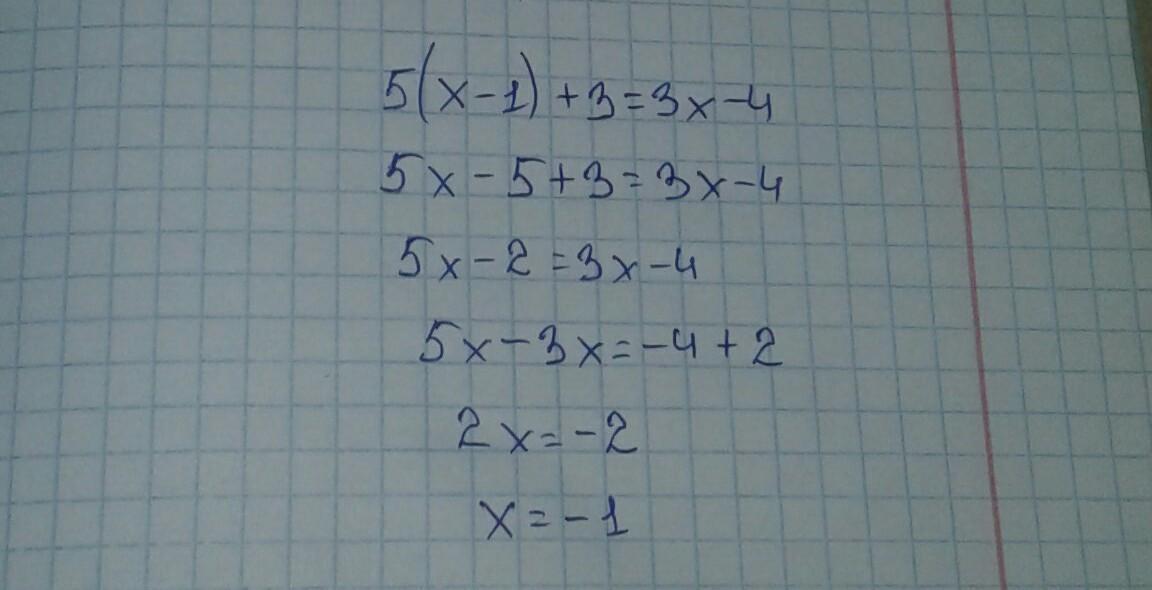 5(x-1)+3=3x-4
5x-5+3=3x-4
5x-2=3x-4
5x-3x=-4+2
2x=-2
x=-1